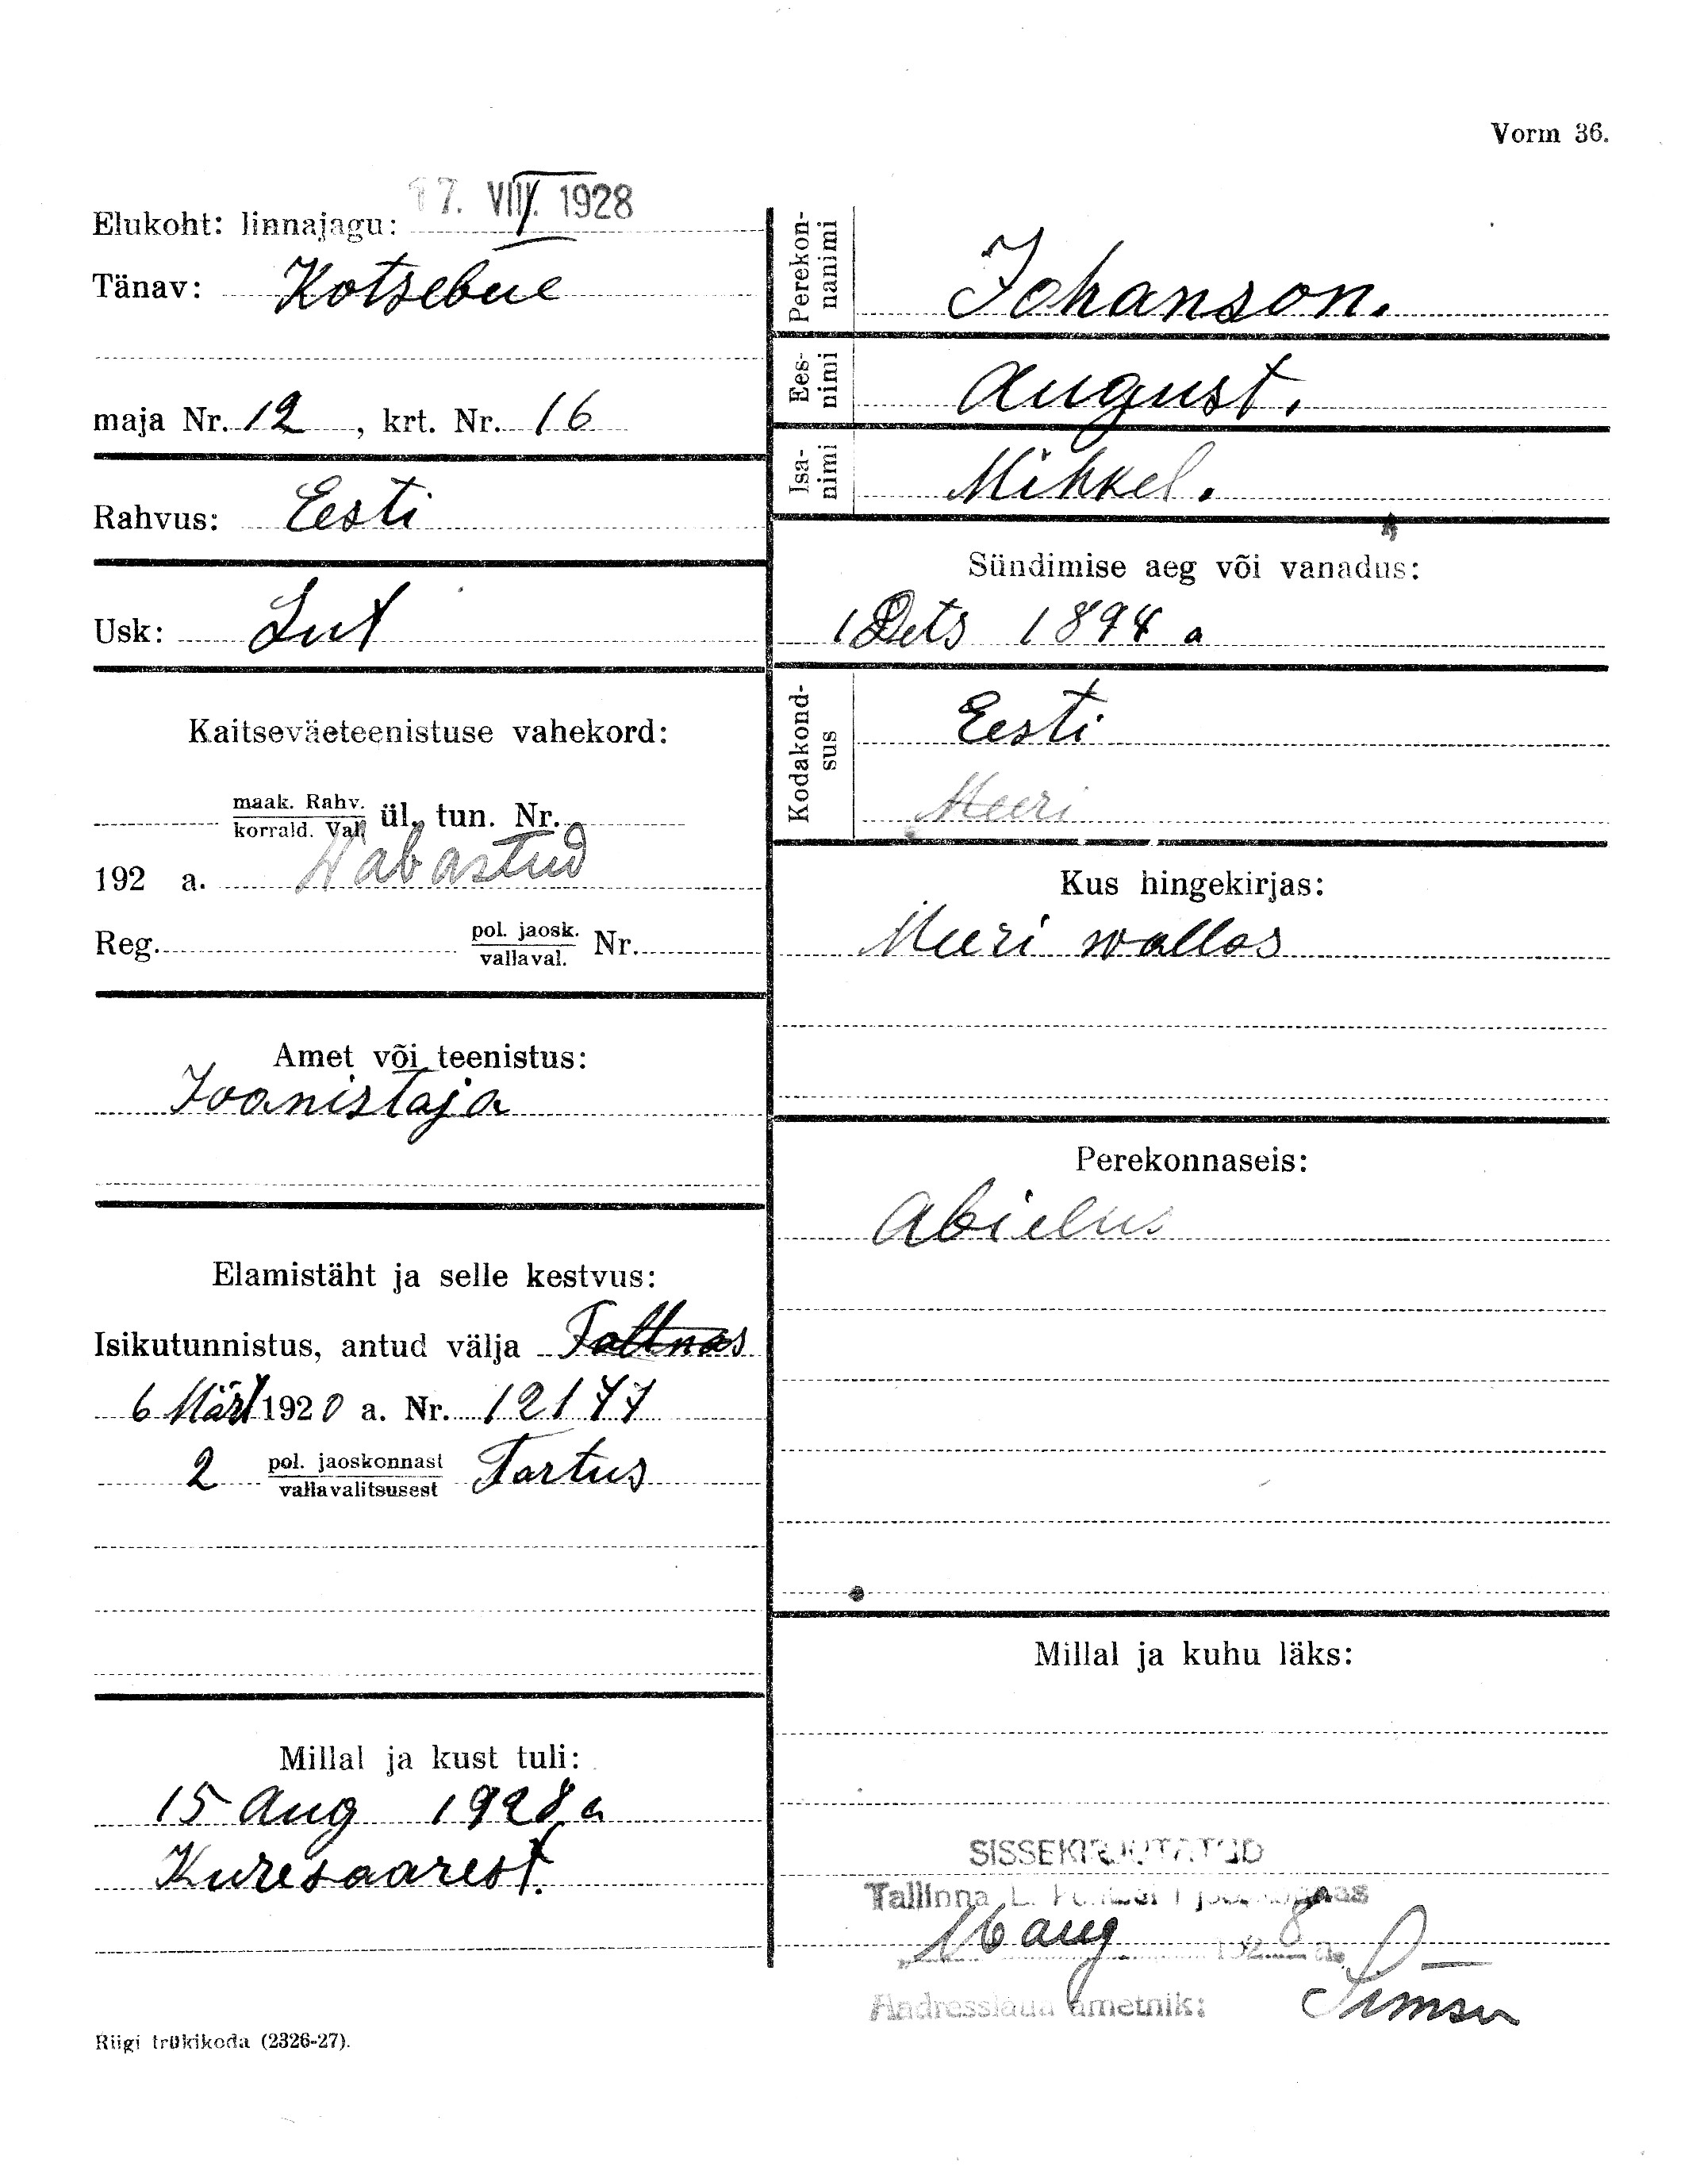 Vorm 36.
17. VIII. 1928
Elukoht: linnajagu: I
Tänav: Kotsebue
maja Nr. 12, krt. Nr. 16
Rahvus: Eesti
Usk: Lut
Kaitseväeteenistuse vahekord:
maak. Rahv.
korrald. Val. ül. tun. Nr.
192 a. Wabastud
Reg. pol. jaosk.
vallaval. Nr.
Amet või teenistus:
Joonistaja
Elamistäht ja selle kestvus:
Isikutunnistus, antud välja Tallnas
6 Märt 1920 a. Nr. 12177
2 pol. jaoskonnast
vallavalitsusest Tartus
Millal ja kust tuli:
15 Aug 1928 a
Kuresaarest.
Riigi trükikoda (2326-27).
Perekonnanimi
Johanson.
Eesnimi
August.
Isanimi
Mihkel.
Sündimise aeg või vanadus:
1 Dets 1894 a
Kodakondsus
Eesti
Meeri
Kus hingekirjas:
Meeri wallas
Perekonnaseis:
Abielus
Millal ja kuhu läks:
SISSEKIRJUTATUD
Tallinna L. Politsei I jaoskonnas
16 aug 1928 a.
Aadresslaua ametnik: